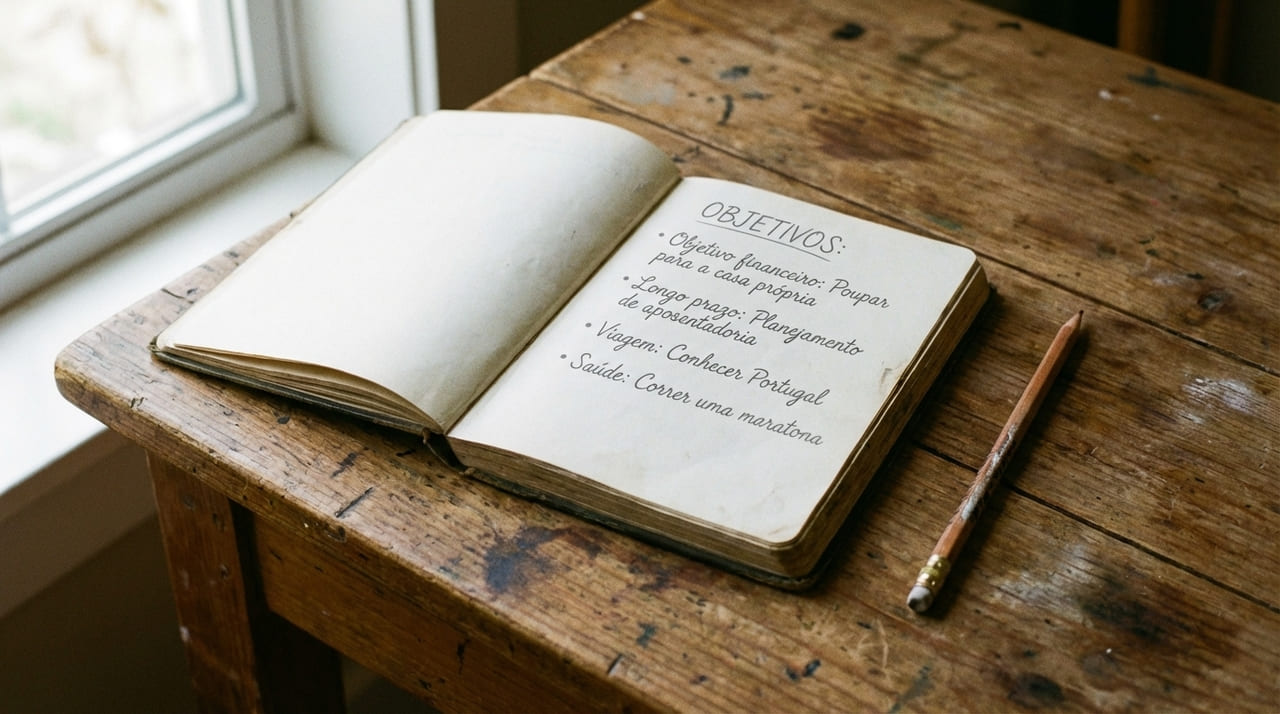 OBJETIVOS:
• Objetivo financeiro: Poupar
para a casa própria
• Longo prazo: Planejamento
de aposentadoria
• Viagem: Conhecer Portugal
• Saúde: Correr uma maratona